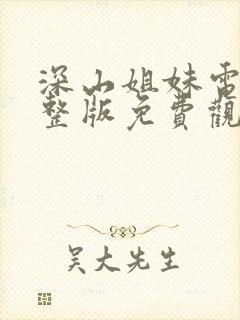 深山姐妹電
整版免費觀
吴大先生